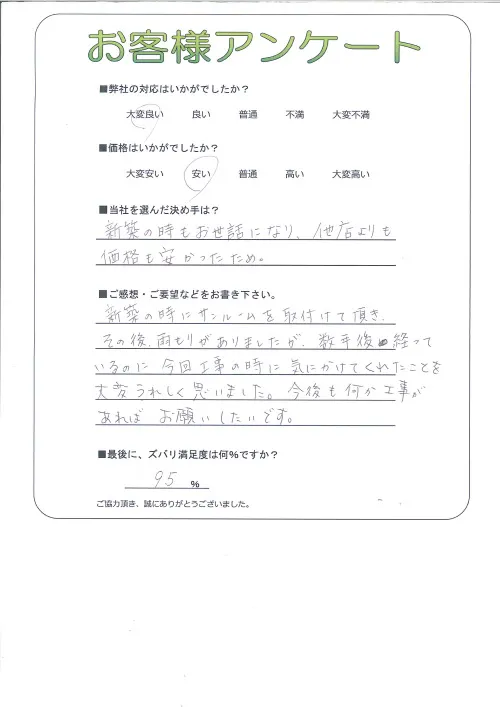 お客様アンケート
■弊社の対応はいかがでしたか？
大変良い 良い 普通 不満 大変不満
■価格はいかがでしたか？
大変安い 安い 普通 高い 大変高い
■当社を選んだ決め手は？
新築の時もお世話になり、他店よりも
価格も安かったため。
■ご感想・ご要望などをお書き下さい。
新築の時にサンルームを取付けて頂き、
その後、雨もりがありましたが、数年後も経って
いるのに今回工事の時に気にかけてくれたことを
大変うれしく思いました。今後も何か工事が
あればお願いしたいです。
■最後に、ズバリ満足度は何%ですか？
95 %
ご協力頂き、誠にありがとうございました。